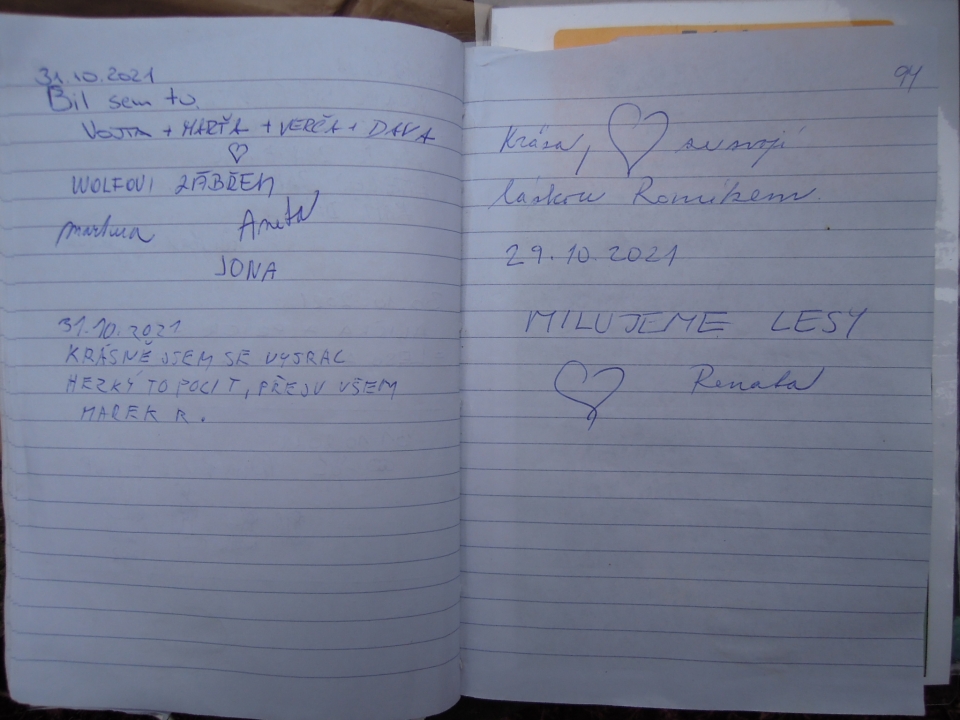 31.10.2021
Bil sem tu.
VOJTA + MARŤA + VERČA + DAVA
WOLFOVI ZÁBŘEH
Martina Aneta
JONA
31.10.2021
KRÁSNĚ JSEM SE VYSRAL
HEZKÝ TO POCIT, PŘEJU VŠEM
MAREK R.
94
Krása, se svojí
láskou Romikem.
29.10.2021
MILUJEME LESY
Renata